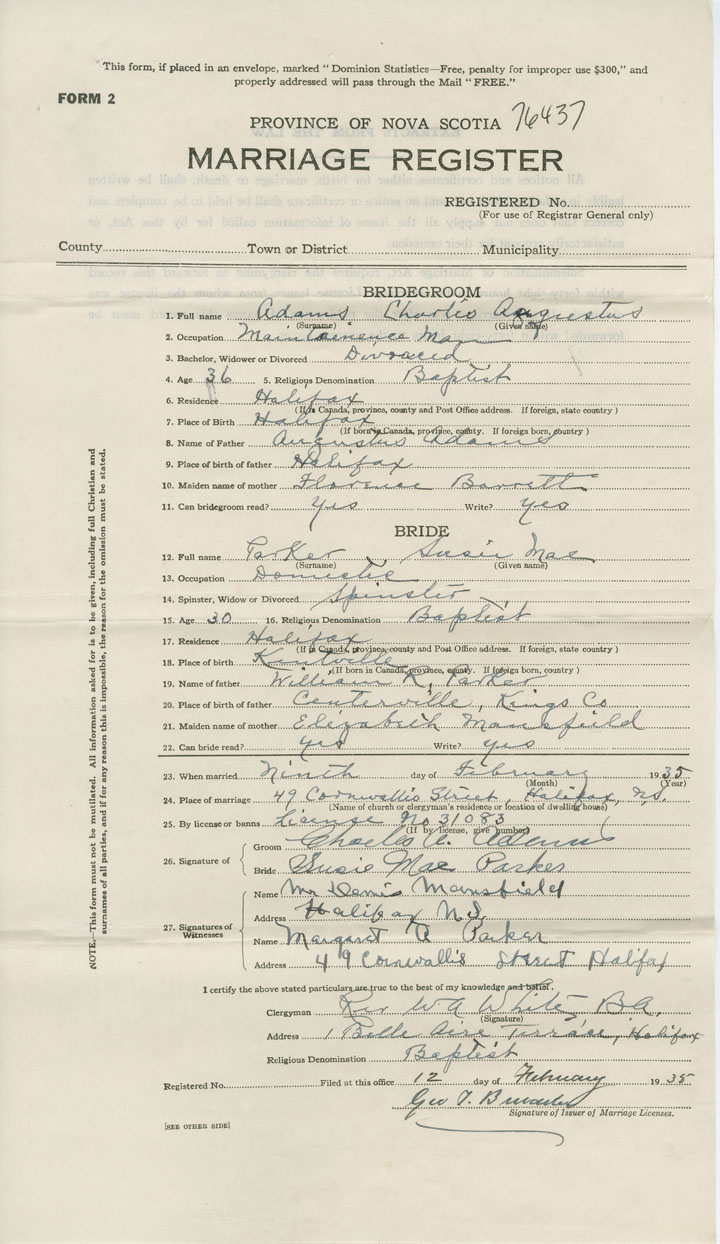 This form, if placed in an envelope, marked "Dominion Statistics—Free, penalty for improper use $300," and
properly addressed will pass through the Mail "FREE."
FORM 2
PROVINCE OF NOVA SCOTIA 76437
MARRIAGE REGISTER
REGISTERED No.
(For use of Registrar General only)
County Town or District Municipality
BRIDEGROOM
1. Full name Adams Charles Augustus
(Surname) (Given name)
2. Occupation Maintainence Man
3. Bachelor, Widower or Divorced Divorced
4. Age 36 5. Religious Denomination Baptist
6. Residence Halifax
(If in Canada, province, county and Post Office address. If foreign, state country )
7. Place of Birth Halifax
(If born in Canada, province, county. If foreign born, country )
8. Name of Father Augustus Adams
9. Place of birth of father Halifax
10. Maiden name of mother Florence Barrett
11. Can bridegroom read? Yes Write? Yes
BRIDE
12. Full name Parker Susie Mae
(Surname) (Given name)
13. Occupation Domestic
14. Spinster, Widow or Divorced Spinster
15. Age 30 16. Religious Denomination Baptist
17. Residence Halifax
(If in Canada, province, county and Post Office address. If foreign, state country )
18. Place of birth Kentville
(If born in Canada, province, county. If foreign born, country )
19. Name of father William R. Parker
20. Place of birth of father Centerville, Kings Co
21. Maiden name of mother Elizabeth Mansfield
22. Can bride read? Yes Write? Yes
23. When married Ninth day of February 1935
(Month) (Year)
24. Place of marriage 49 Cornwallis Street, Halifax, N.S.
(Name of church or clergyman's residence or location of dwelling house)
25. By license or banns License No 31083
(If by license, give number)
26. Signature of Groom Charles A. Adams
Bride Susie Mae Parker
27. Signatures of Witnesses Name Mr Mansfield
Address Halifax N.S.
Name Margaret A Parker
Address 49 Cornwallis Street Halifax
I certify the above stated particulars are true to the best of my knowledge and belief.
Clergyman Rev W A White, B.A.
(Signature)
Address 1 Belle Aire Terrace, Halifax
Religious Denomination Baptist
Registered No. Filed at this office 12 day of February 1935
Geo T.
Signature of Issuer of Marriage Licenses.
[SEE OTHER SIDE]
NOTE.—This form must not be mutilated. All information asked for is to be given, including full Christian and
surnames of all parties, and if for any reason this is impossible, the reason for the omission must be stated.